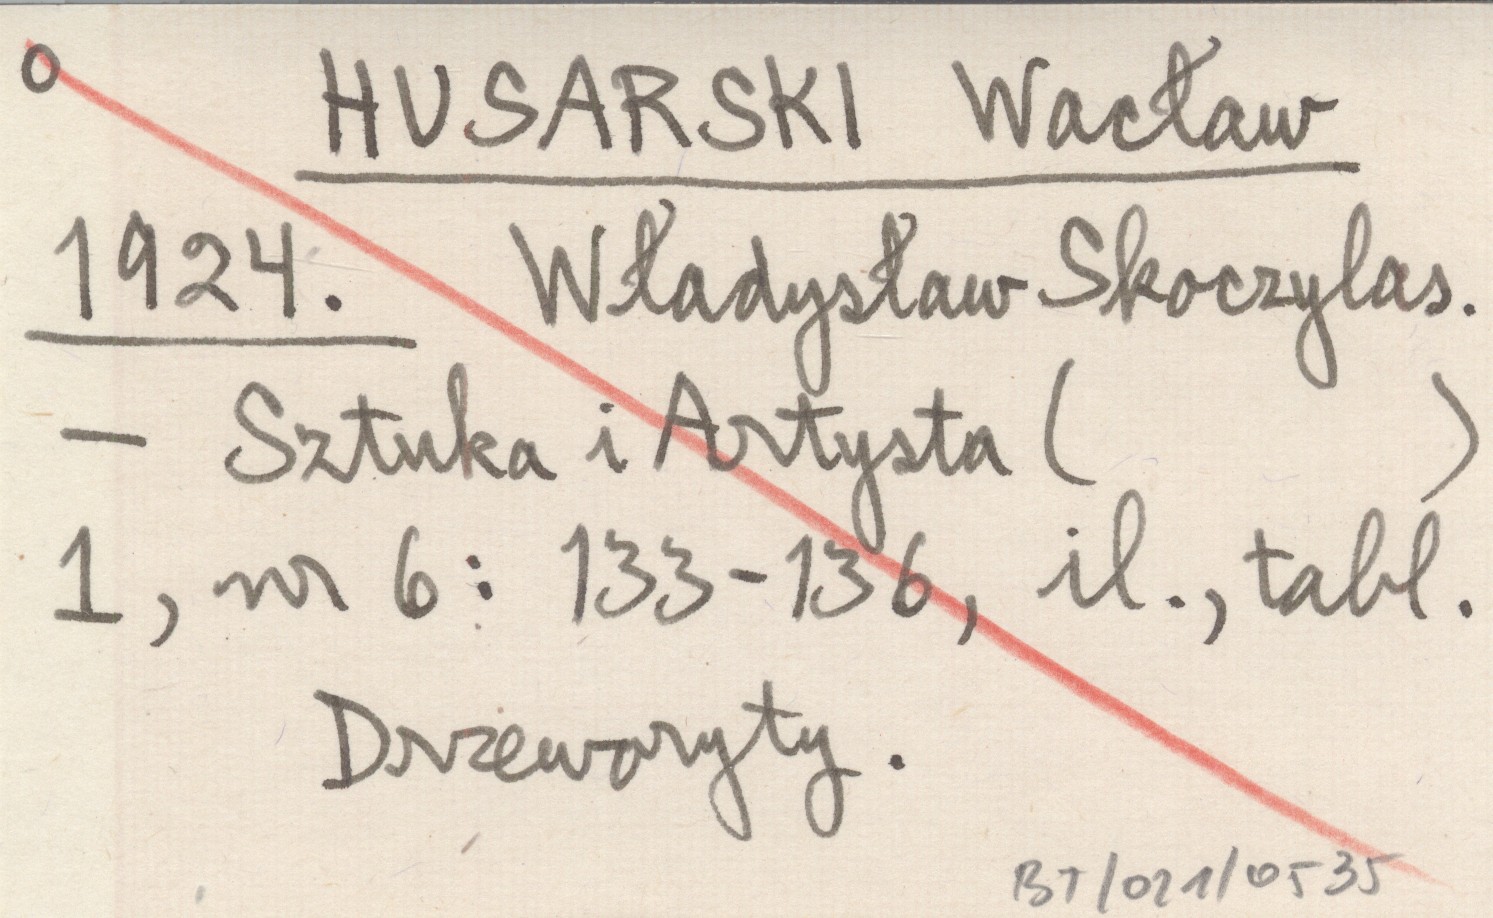 o HUSARSKI Wacław
1924. Władysław Skoczylas.
— Sztuka i Artysta ( )
1, nr 6: 133-136, il., tabl.
Drzeworyty.
BT/021/0535